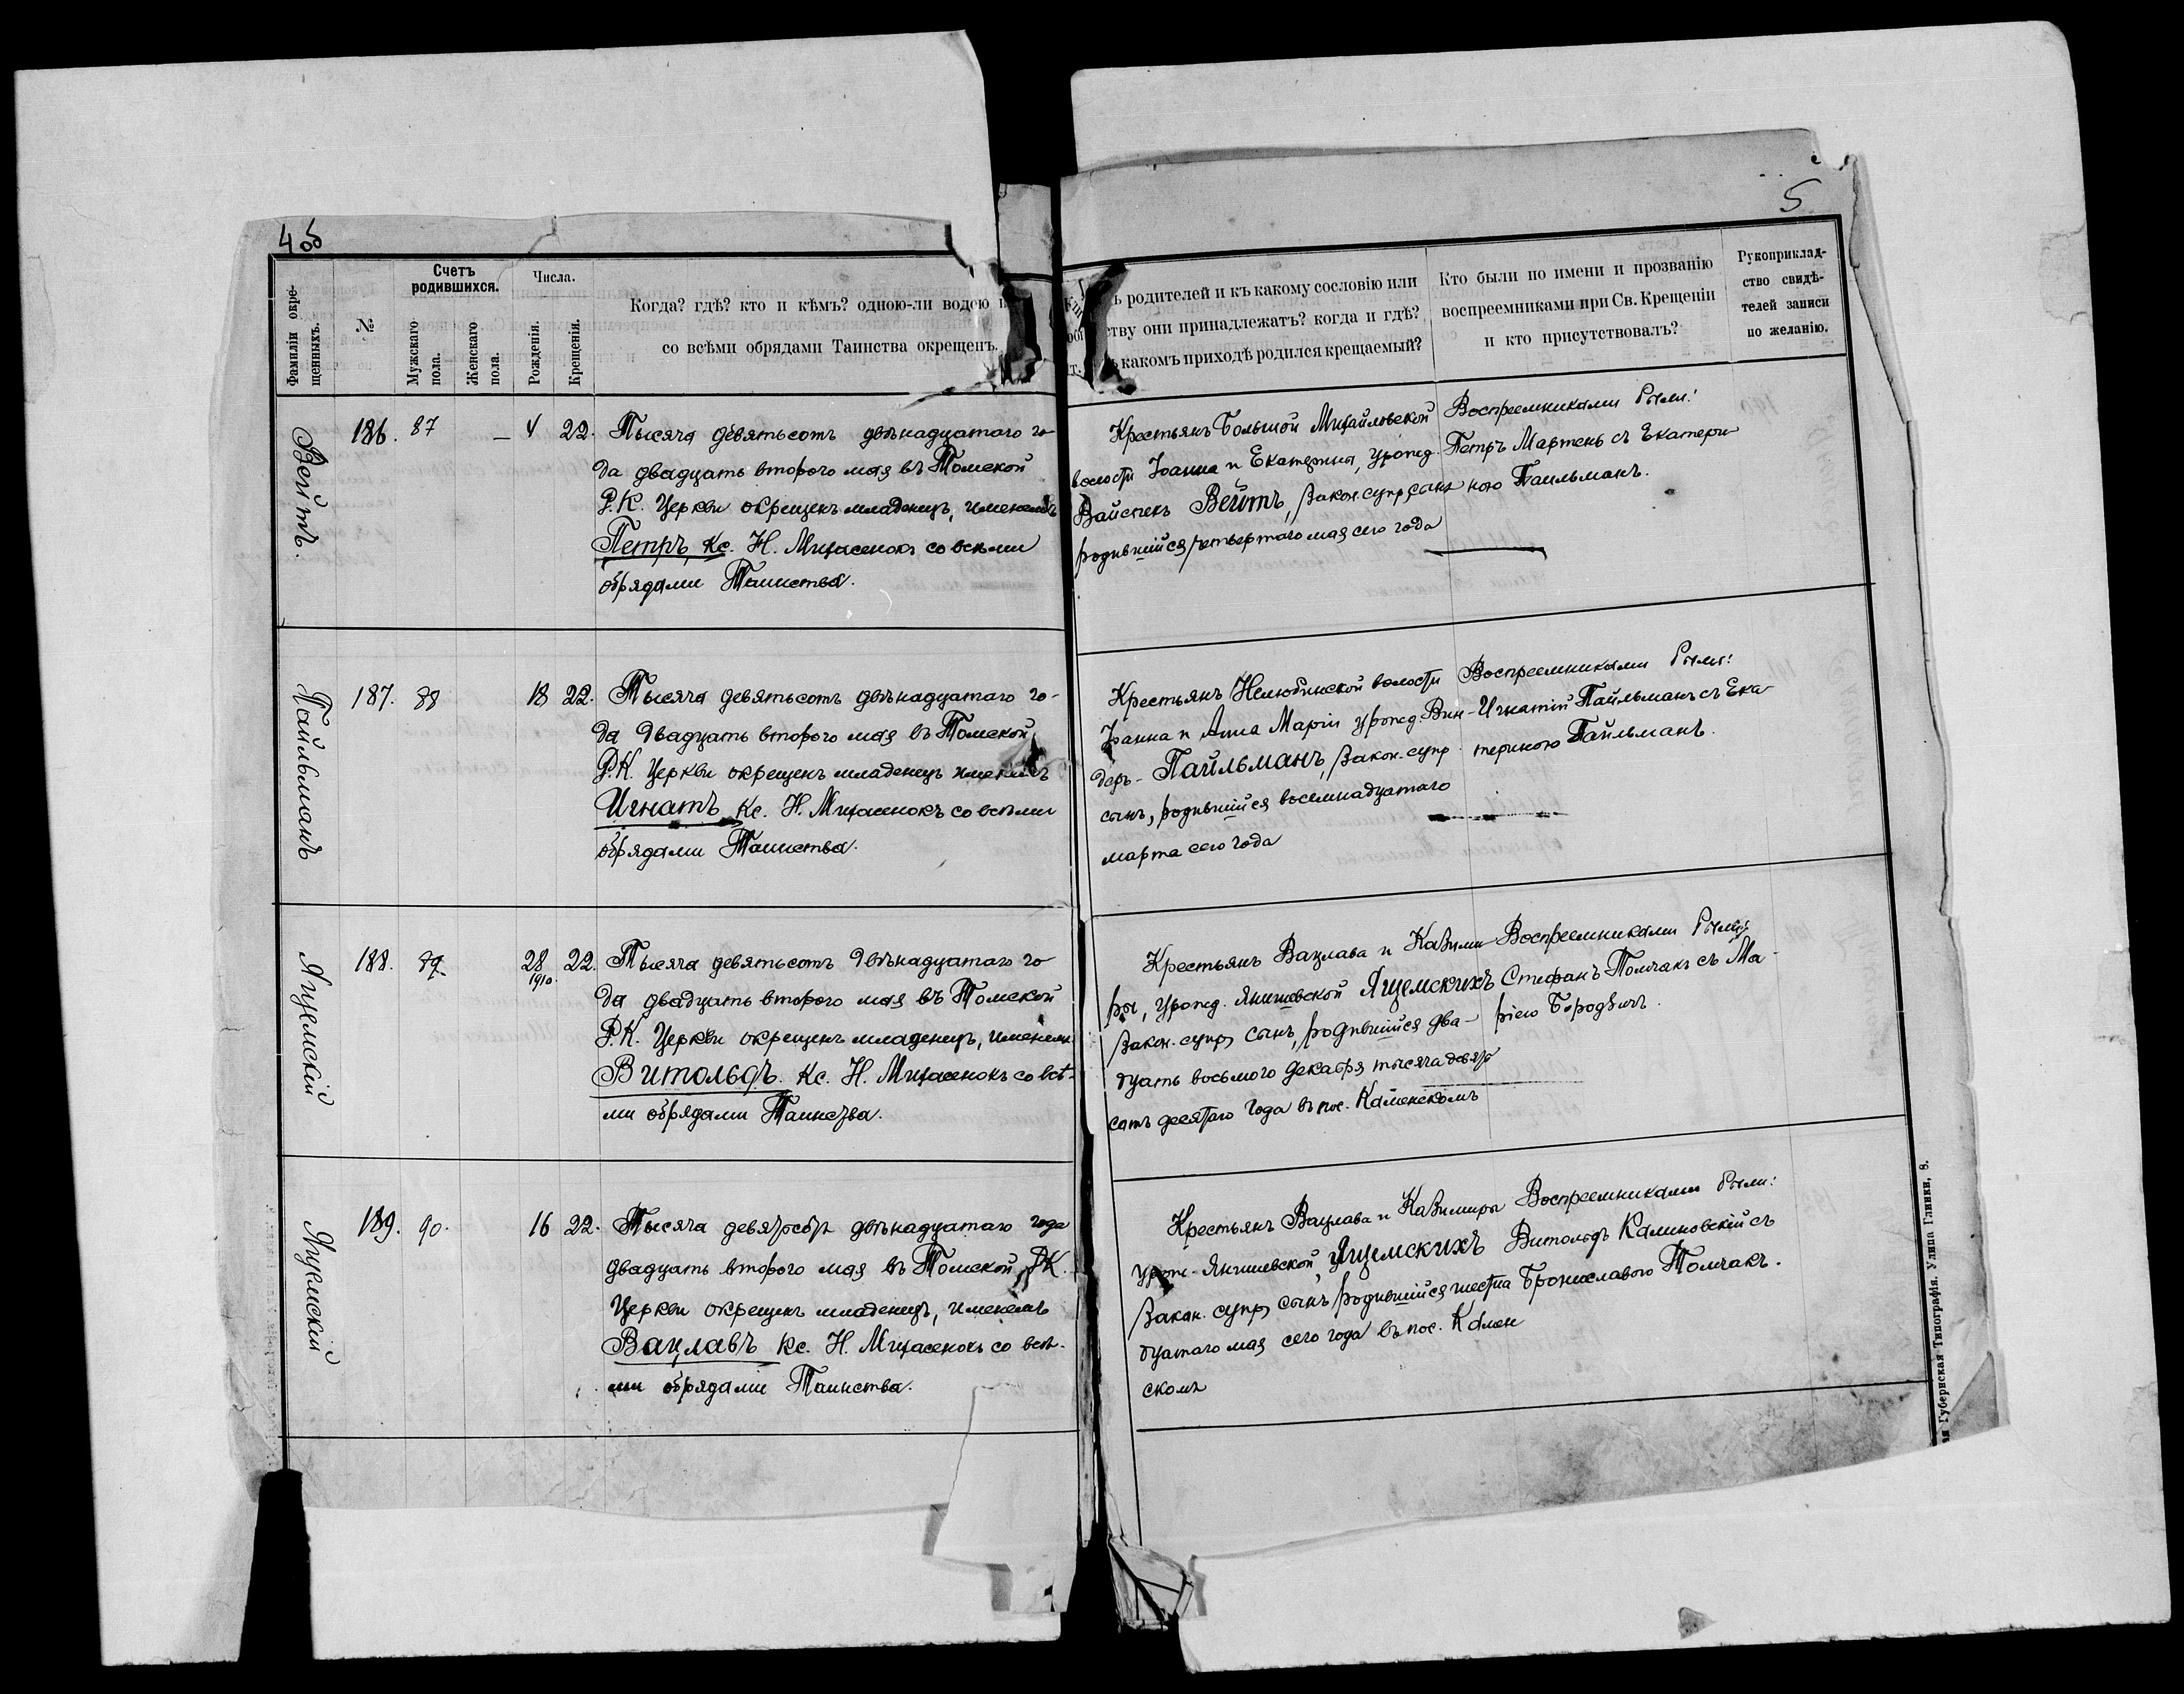 4 об
5
Фамиліи окре-
щенныхъ.
№
Счетъ
родившихся.
Мужскаго
пола.
Женскаго
пола.
Числа.
Рожденія.
Крещенія.
Когда? гдѣ? кто и кѣмъ? одною-ли водою и
со всѣми обрядами Таинства окрещенъ.
родителей и къ какому сословію или
ству они принадлежатъ? когда и гдѣ?
какомъ приходѣ родился крещаемый?
Кто были по имени и прозванію
воспреемниками при Св. Крещеніи
и кто присутствовалъ?
Рукоприклад-
ство свидѣ-
телей записи
по желанію.
Вейтъ.
186. 87 — 4 22.
Тысяча девятьсотъ двѣнадцатаго го
да двадцать второго мая въ Томской
Р.К. Церкви окрещенъ младенецъ, именемъ
Петръ кс. Н. Михасенокъ со всѣми
обрядами Таинства.
Крестьянъ Большой Михайловской
волости Іоанна и Екатерины, урожд.
Вайспекъ Вейтъ, закон. супр сынъ
родившійся четвертаго мая сего года
Воспреемниками были:
Петръ Мартенъ съ Екатери
ною Паильманъ.
Пайльманъ
187. 88 18 22.
Тысяча девятьсотъ двѣнадцатаго го-
да двадцать второго мая въ Томской
Р.К. Церкви окрещенъ младенецъ именемъ
Игнатъ кс. Н. Михасенокъ со всѣми
обрядами Таинства.
Крестьянъ Нелюбинской волости
Іоанна и Анна Маріи урожд. Вин-
деръ- Пайльманъ, закон. супр
сынъ, родившійся восемнадцатаго
марта сего года
Воспреемниками были:
Игнатій Пайльманъ съ Ека
териною Пайльманъ.
Ящемскій
188. 89. 28 22.
1910.
Тысяча девятьсотъ двѣнадцатаго го
да двадцать второго мая въ Томской
Р.К. Церкви окрещенъ младенецъ, именемъ
Витольдъ. кс. Н. Михасенокъ со всѣ-
ми обрядами Таинства.
Крестьянъ Вацлава и Казими
ры, урожд. Янишевской Ящемскихъ
закон. супр сынъ, родившійся два-
дцать восьмого декабря тысяча девять
сотъ десятаго года въ пос. Каменскомъ
Воспреемниками были
Стефанъ Томчакъ съ Ма-
ріею Бородзичъ.
Ящемскій
189. 90. 16 22.
Тысяча девятьсотъ двѣнадцатаго года
двадцать второго мая въ Томской Р.К.
Церкви окрещенъ младенецъ, именемъ
Вацлавъ кс. Н. Михасенокъ со всѣ-
ми обрядами Таинства.
Крестьянъ Вацлава и Казимиры
урож.- Янишевской, Ящемскихъ
закон. супр сынъ родившійся шестна
дцатаго мая сего года въ пос. Камен
скомъ
Воспреемниками были:
Витольдъ Калиновскій съ
Брониславою Томчакъ.
Губернская Типографія. Улица Глинки, 8.